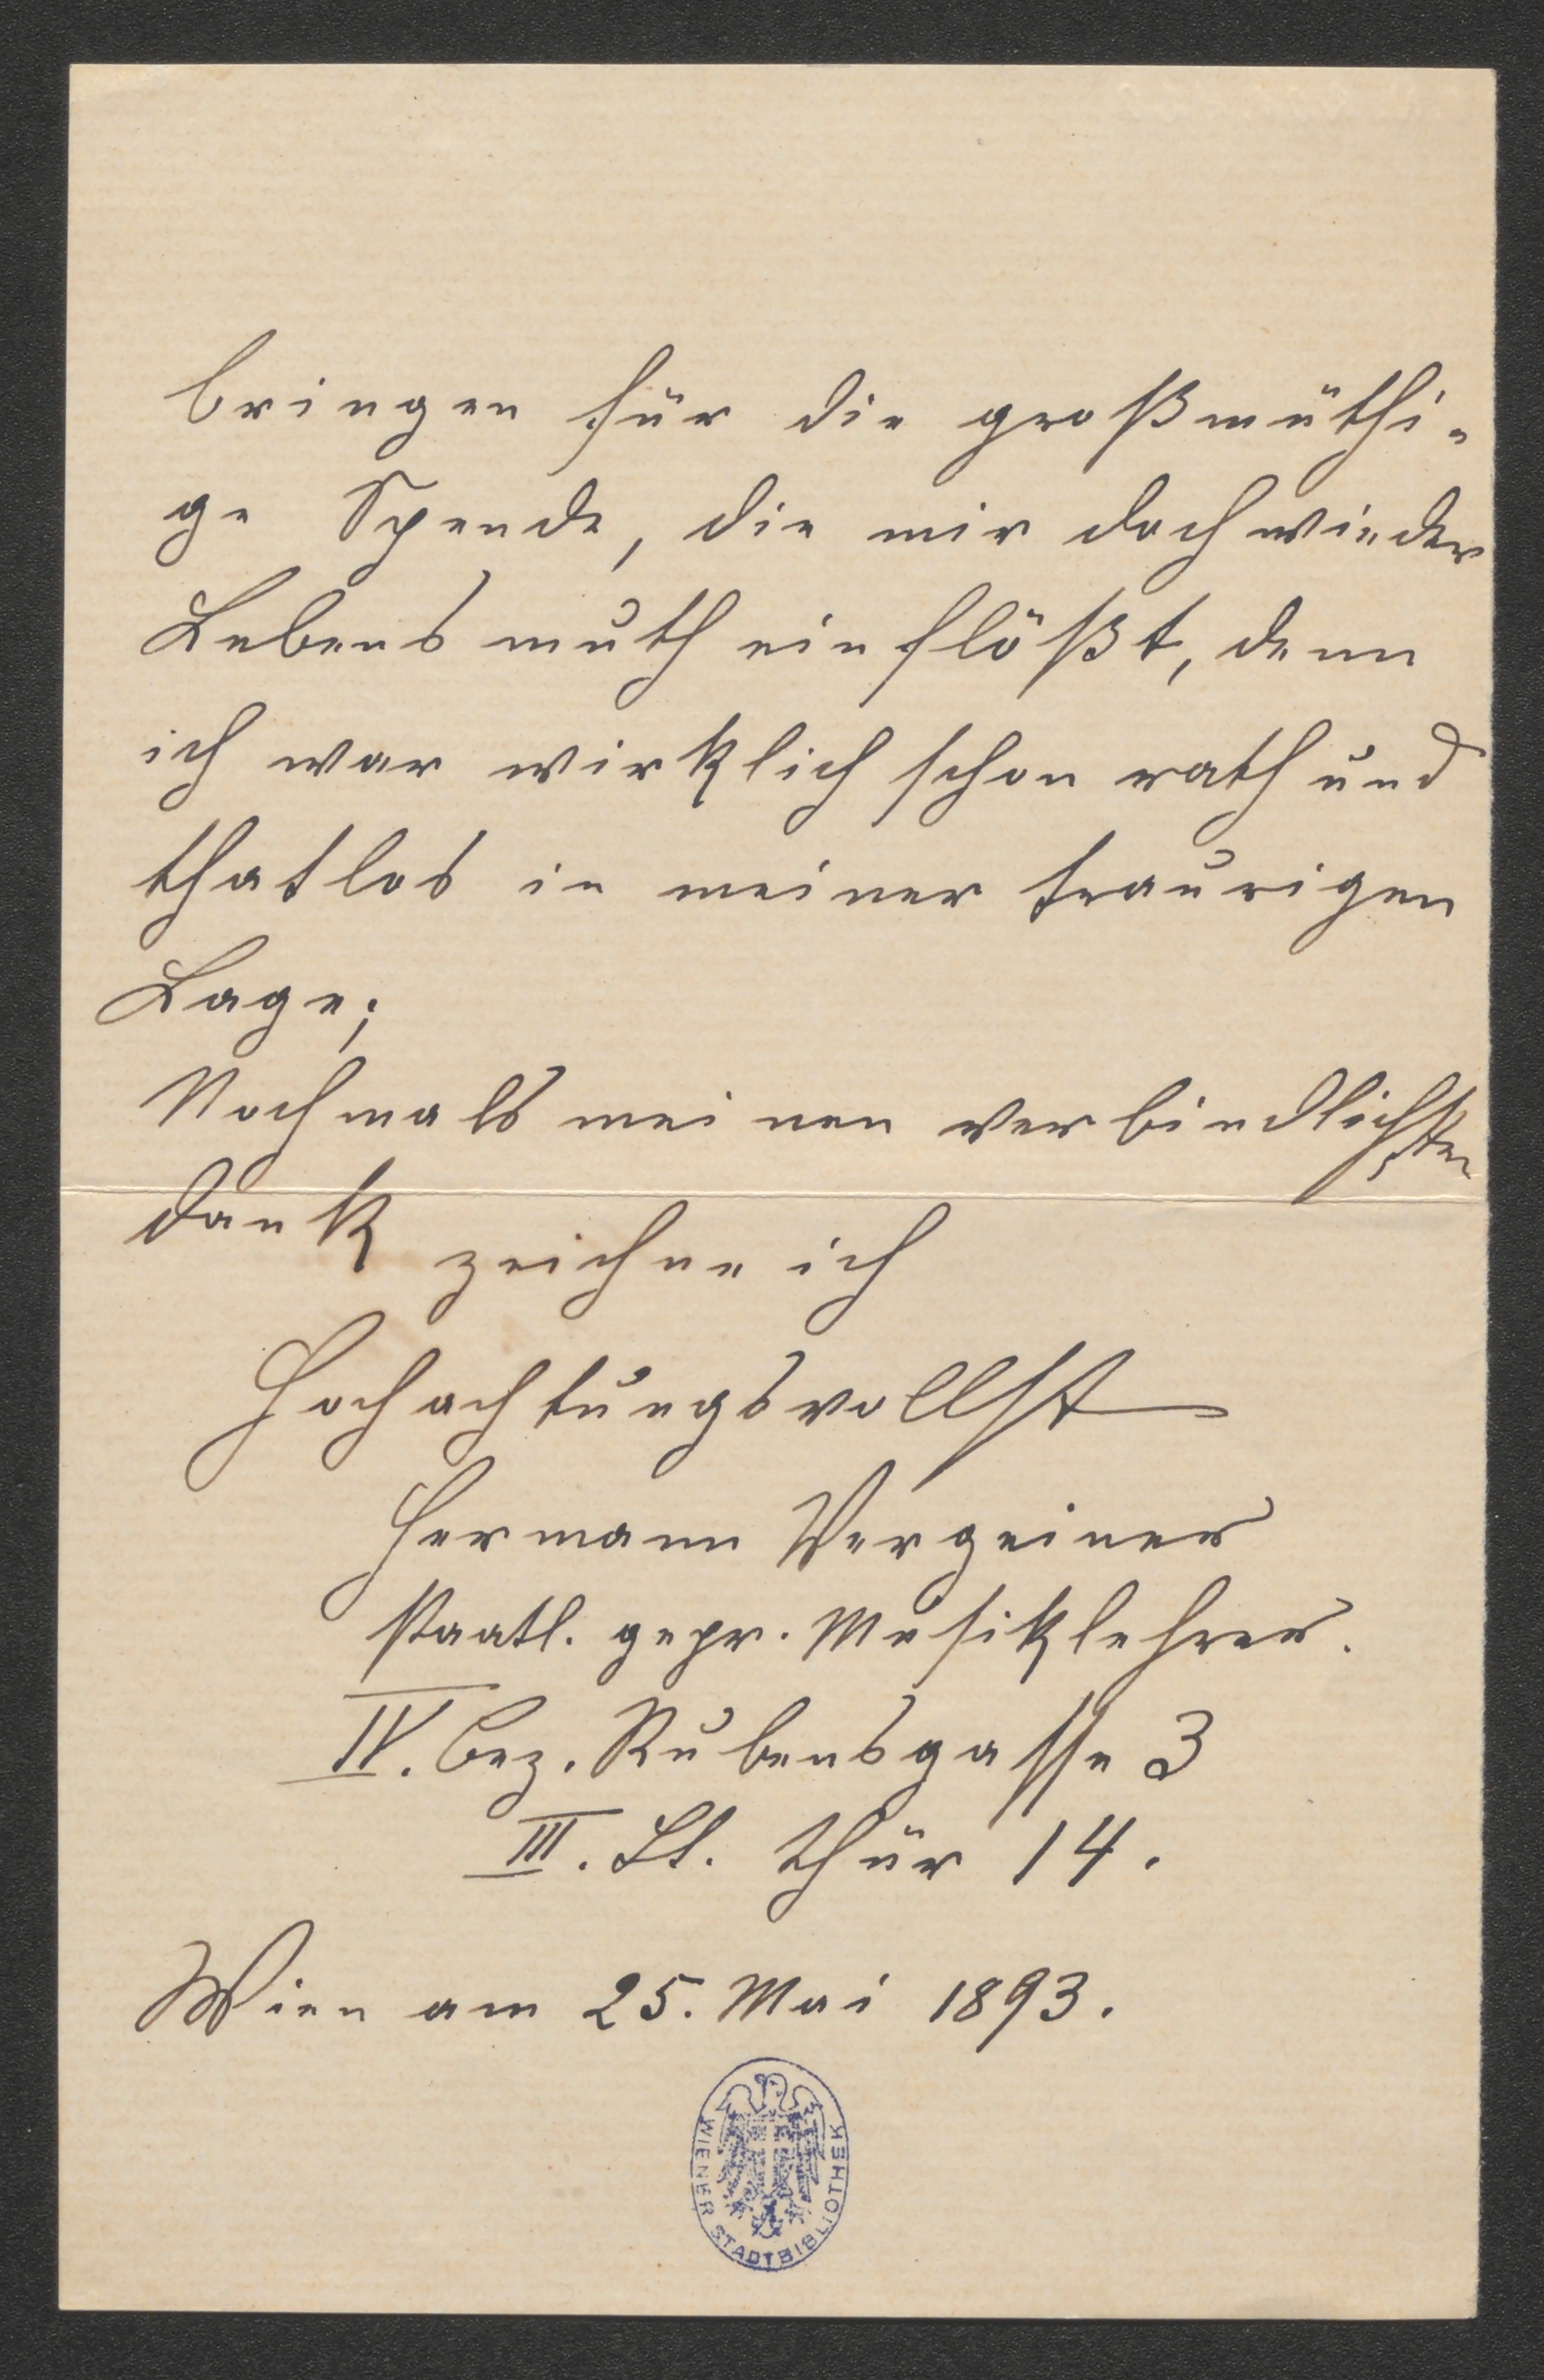 bringen für die großmüthi-
ge Spende, die mir doch wieder
Lebensmuth einflößt, denn
ich war wirklich schon rath und
thatlos in meiner traurigen
Lage;
Nochmals meinen verbindlichsten
Dank zeichne ich
Hochachtungsvollst
Hermann Vergeiner
staatl. gepr. Musiklehrer.
IV. Bez. Rubensgasse 3
III. St. Thür 14.
Wien am 25. Mai 1893.
WIENER STADTBIBLIOTHEK